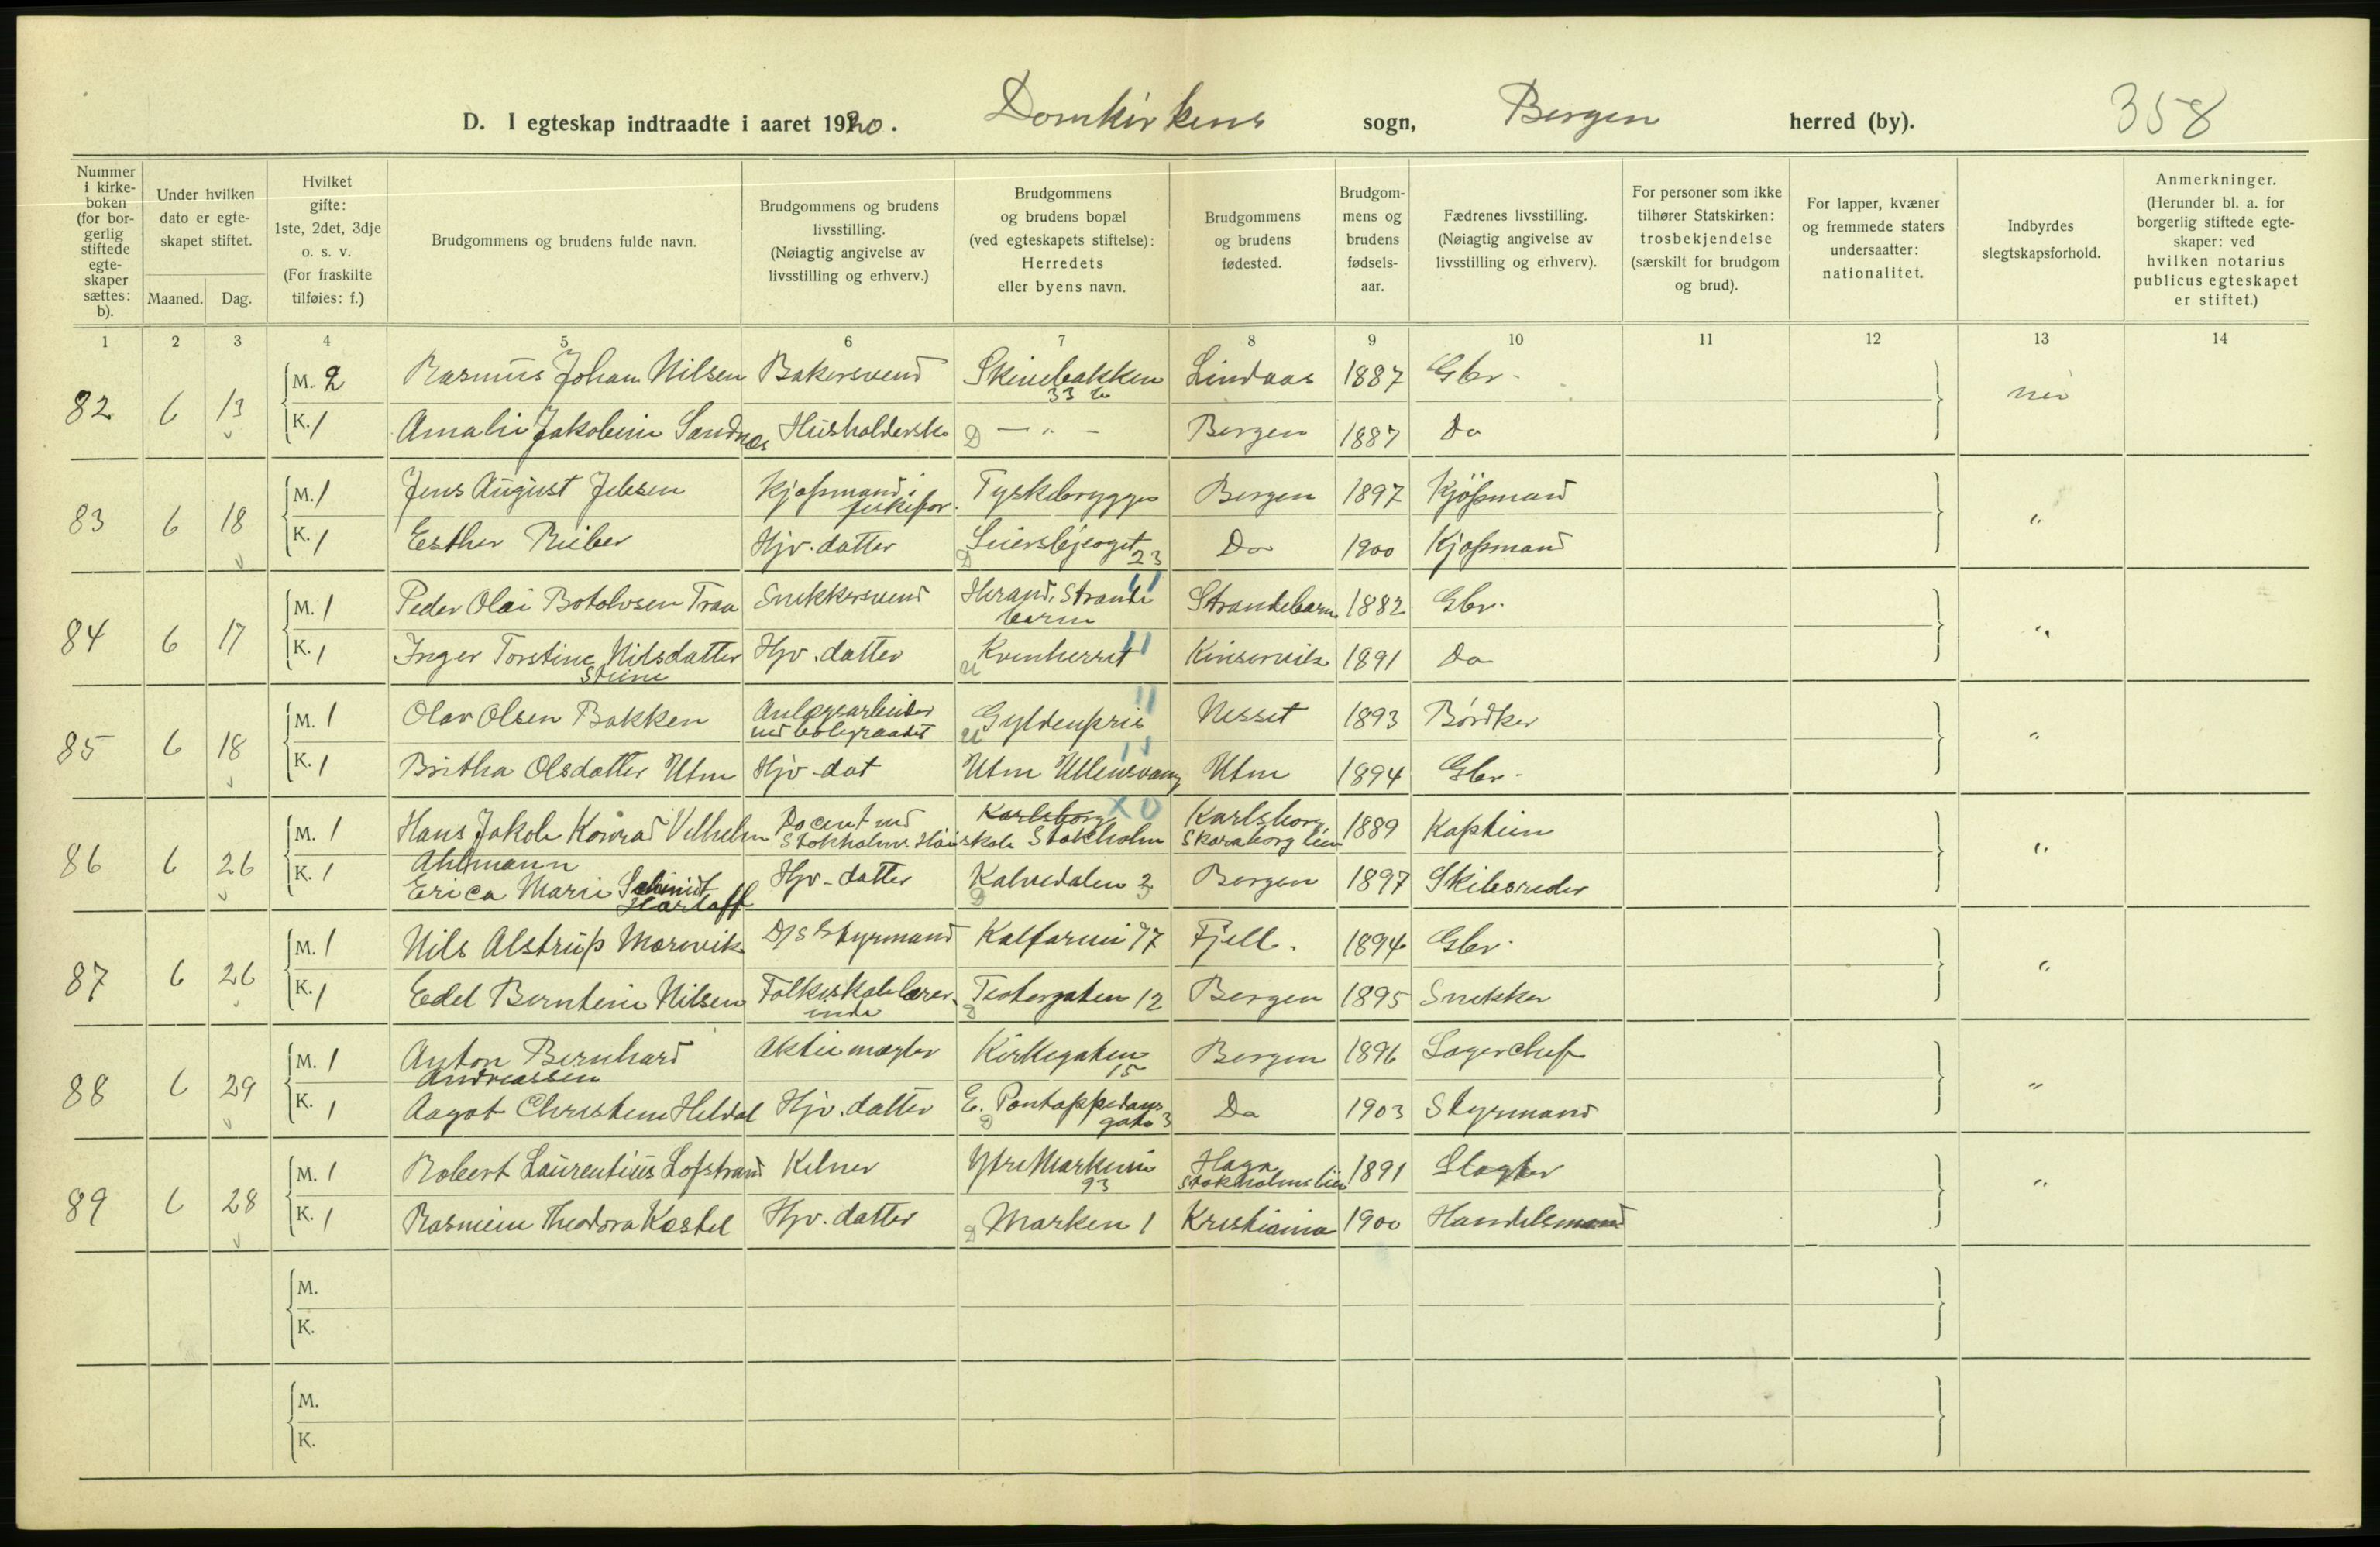 D. I egteskap indtraadte i aaret 1920. Domkirkens sogn, Bergen herred (by). 358
Nummer i kirkeboken (for borgerlig stiftede egteskaper sættes: b).
Under hvilken dato er egteskapet stiftet.
Maaned. Dag.
Hvilket gifte: 1ste, 2det, 3dje o. s. v. (For fraskilte tilføies: f.)
Brudgommens og brudens fulde navn.
Brudgommens og brudens livsstilling. (Nøiagtig angivelse av livsstilling og erhverv.)
Brudgommens og brudens bopæl (ved egteskapets stiftelse): Herredets eller byens navn.
Brudgommens og brudens fødested.
Brudgommens og brudens fødselsaar.
Fædrenes livsstilling. (Nøiagtig angivelse av livsstilling og erhverv).
For personer som ikke tilhører Statskirken: trosbekjendelse (særskilt for brudgom og brud).
For lapper, kvæner og fremmede staters undersaatter: nationalitet.
Indbyrdes slegtskapsforhold.
Anmerkninger. (Herunder bl. a. for borgerlig stiftede egteskaper: ved hvilken notarius publicus egteskapet er stiftet.)
1 2 3 4 5 6 7 8 9 10 11 12 13 14
82 6 13 M. 2 Rasmus Johan Nilsen Bakersvend Skivebakken 33 b Lindaas 1887 Gbr. nei
K. 1 Amalie Jakobine Sandnes Husholderske D — " — Bergen 1887 Do
83 6 18 M. 1 Jens August Jebsen Kjøpmand i fiskefor. Tyskebryggen Bergen 1897 Kjøpmand "
K. 1 Esther Rieber Hjv. datter D Seiersbjerget 23 Do 1900 Kjøpmand
84 6 17 M. 1 Peder Olai Botolvsen Traa Snekkersvend Herand, Strandebarm Strandebarm 1882 Gbr. "
K. 1 Inger Torstine Nilsdatter Steine Hjv. datter U Kvinherret Kinservik 1891 Do
85 6 18 M. 1 Olav Olsen Bakken Anlægsarbeider ved boligraadet U Gyldenpris Nesset 1893 Bødker "
K. 1 Britha Olsdatter Utne Hjv. dat Utne Ullensvang Utne 1894 Gbr.
86 6 26 M. 1 Hans Jakob Konrad Vilhelm Ahlmann Docent ved Stokholms Høiskole Karlsborg Stokholm Karlsborg Skaraborg len 1889 Kaptein "
K. 1 Erica Marie Schmidt Harloff Hjv. datter D Kalvedalen 2 Bergen 1897 Skibsreder
87 6 26 M. 1 Nils Alstrup Morvik D/S Styrmand Kalfarvei 77 Fjell. 1894 Gbr. "
K. 1 Edel Berntine Nilsen Folkeskolelærerinde D Teatergaten 12 Bergen 1895 Snekker
88 6 29 M. 1 Anton Bernhard Andreassen Aktiemægler Kirkegaten 15 Bergen 1896 Lagerchef "
K. 1 Aagot Christine Heldal Hjv. datter D E. Pontoppidans gate 3 Do 1903 Styrmand
89 6 28 M. 1 Robert Laurentius Lofstrand Kelner Ytre Markevei 93 Haga Stokholms len 1891 Slagter "
K. 1 Rasmine Theodora Kastel Hjv. datter D Marken 1 Kristiania 1900 Handelsmand
M.
K.
M.
K.